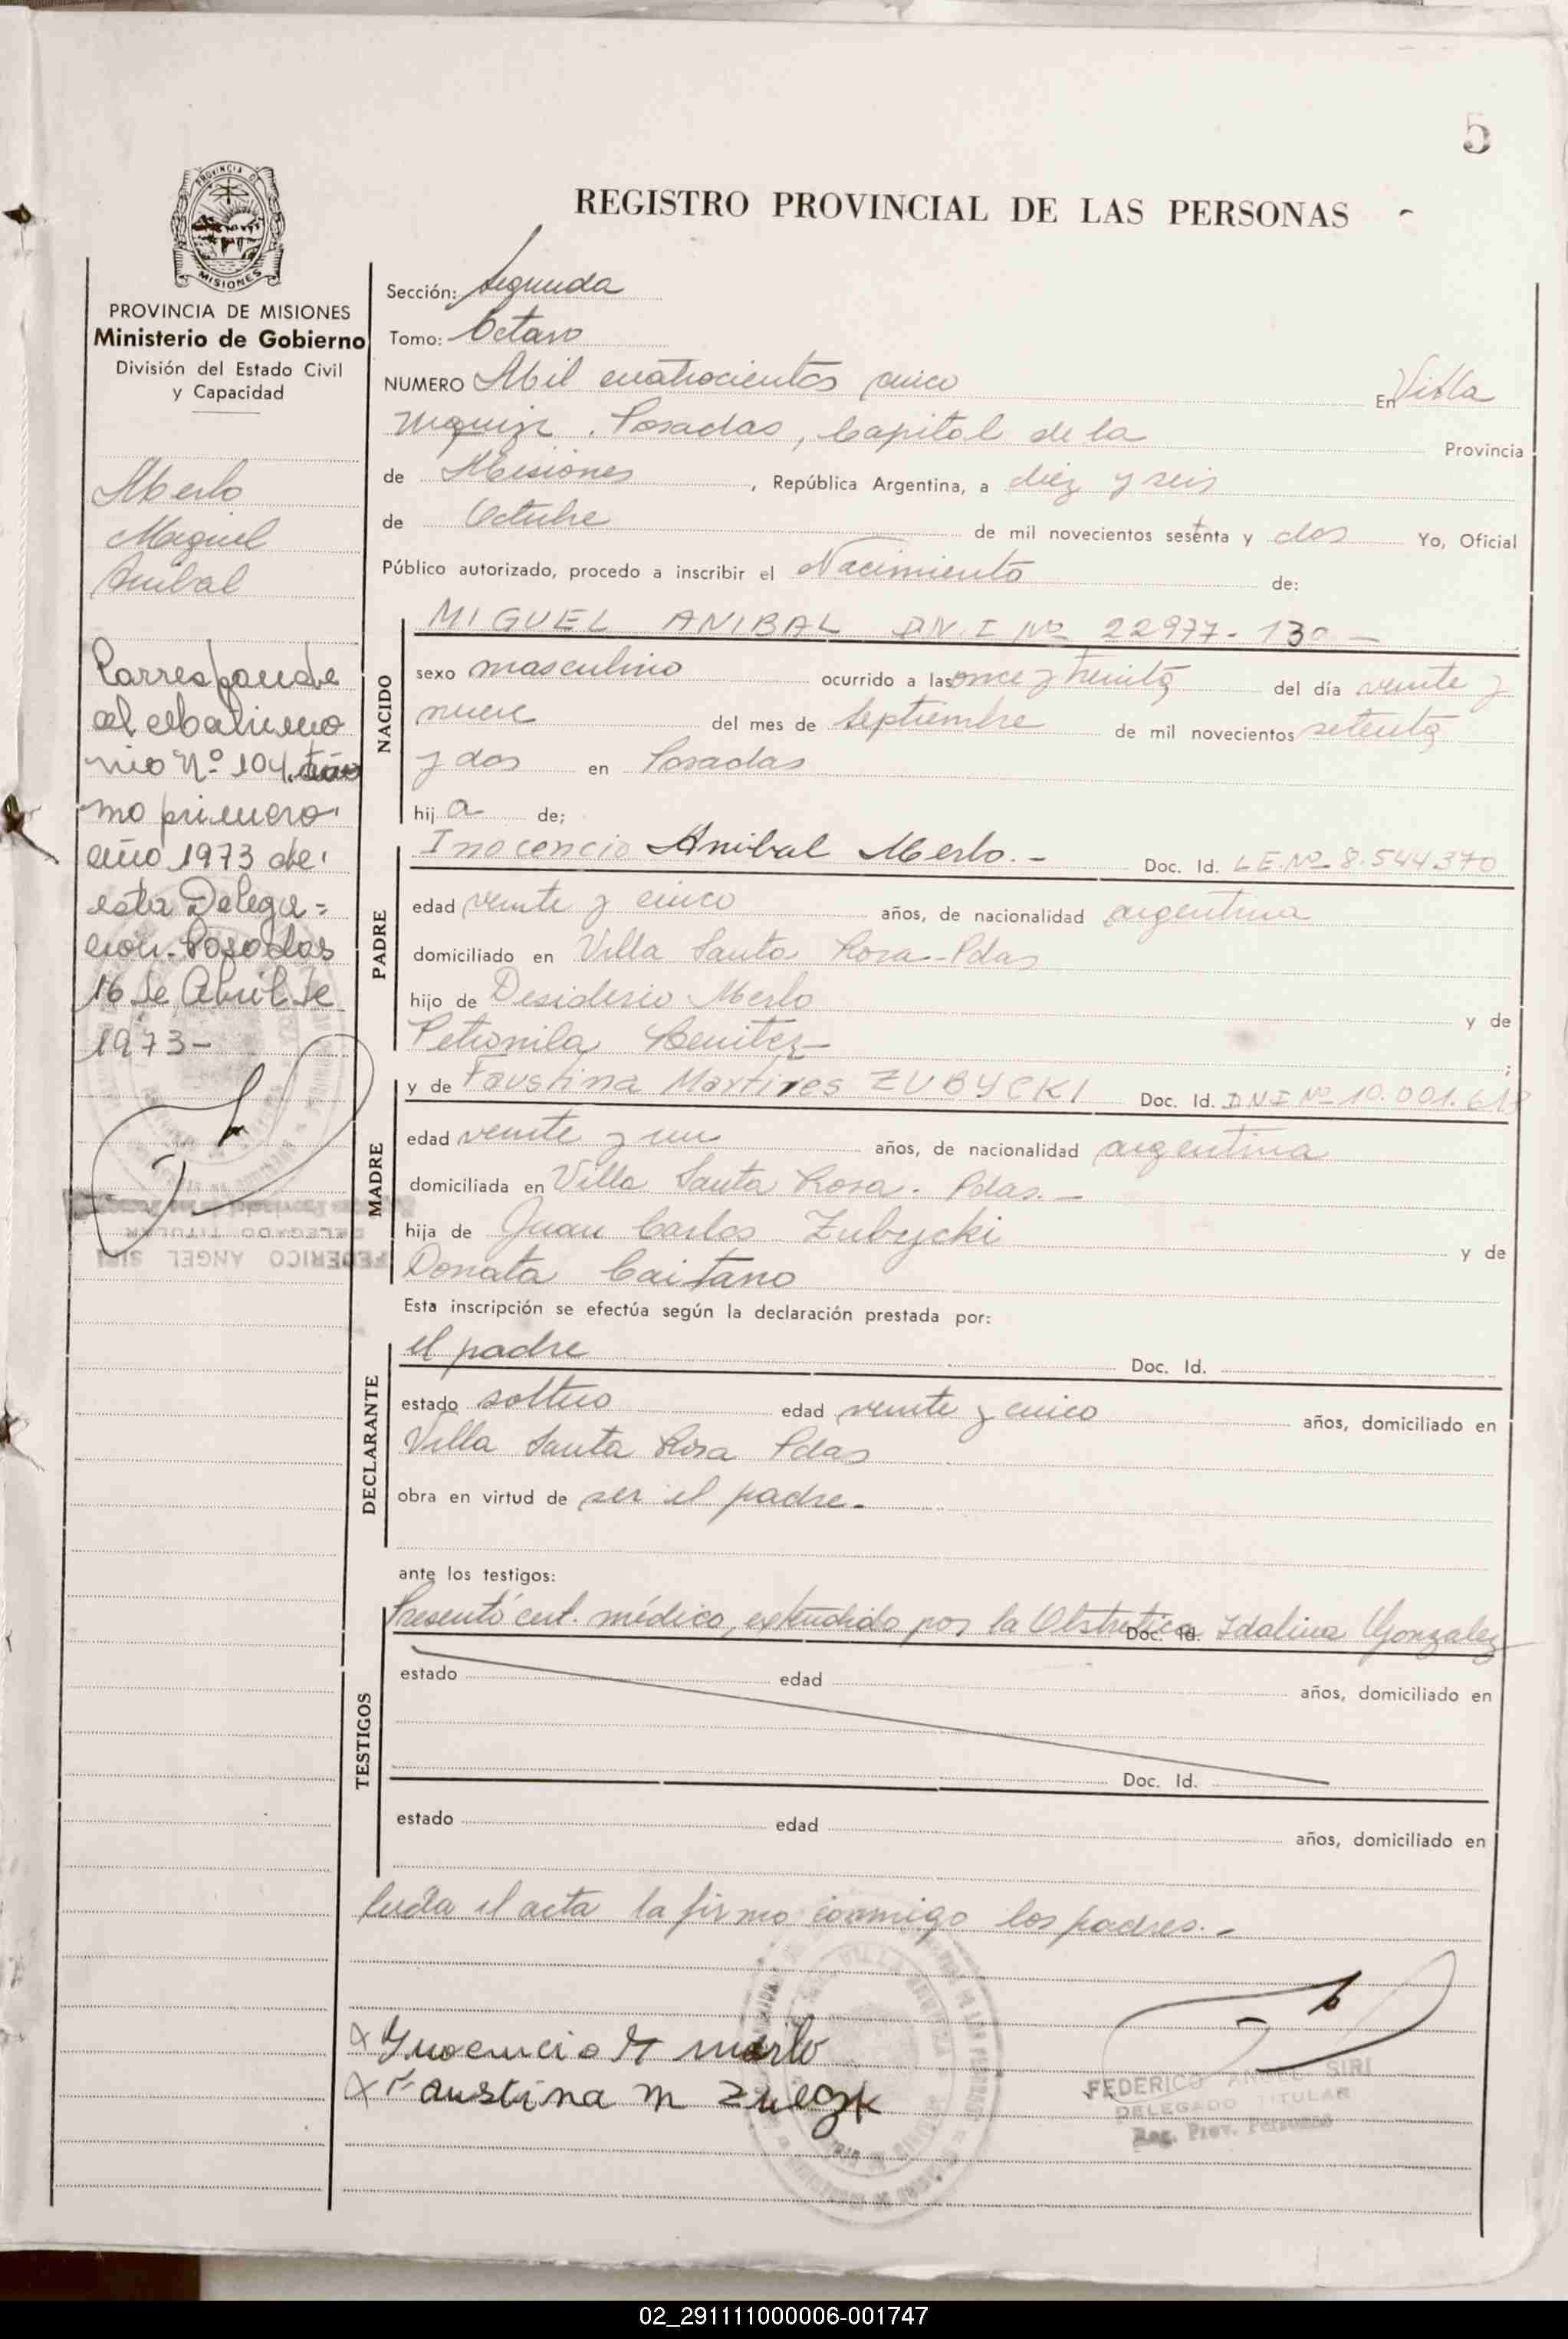 5
REGISTRO PROVINCIAL DE LAS PERSONAS
PROVINCIA DE MISIONES
MISIONES
PROVINCIA DE MISIONES
Ministerio de Gobierno
División del Estado Civil
y Capacidad
Merlo
Miguel
Anibal
Corresponde
al
nio Nº 104
mo primero
año 1973 de
esta Delega=
ción. Posadas
16 de Abril de
1973-
FEDERICO ANGEL SIRI
DELEGADO TITULAR
Sección: Segunda
Tomo: Octavo
NUMERO Mil cuatrocientos cinco En Villa
Urquiza. Posadas, Capital de la Provincia
de Misiones, República Argentina, a diez y seis
de Octubre de mil novecientos sesenta y dos Yo, Oficial
Público autorizado, procedo a inscribir el Nacimiento de:
NACIDO
MIGUEL ANIBAL D.N.I Nº 22977-130-
sexo masculino ocurrido a las once y treinta del día veinte y
nueve del mes de Septiembre de mil novecientos setenta
y dos en Posadas
hij a de;
PADRE
Inocencio Anibal Merlo.- Doc. Id. L.E.Nº 8.544370
edad veinte y cinco años, de nacionalidad argentina
domiciliado en Villa Santa Rosa-Pdas
hijo de Desiderio Merlo y de
Petronila Benitez- ;
MADRE
y de Faustina Martires ZUBYCKI Doc. Id. D.N.I Nº 10.001.618
edad veinte y un años, de nacionalidad argentina
domiciliada en Villa Santa Rosa. Pdas.-
hija de Juan Carlos Zubycki y de
Donata Caitano
Esta inscripción se efectúa según la declaración prestada por:
DECLARANTE
el padre Doc. Id.
estado soltero edad veinte y cinco años, domiciliado en
Villa Santa Rosa Pdas
obra en virtud de ser el padre.
ante los testigos:
TESTIGOS
Presentó cert. médico, extendido por la Obstretica Idalina Gonzalez
Doc. Id.
estado edad años, domiciliado en
Doc. Id.
estado edad años, domiciliado en
Leída el acta la firmo conmigo los padres.-
x Inocencio A merlo
x Faustina M
FEDERICO ANGEL SIRI
DELEGADO TITULAR
Reg. Prov. Personas
02_291111000006-001747